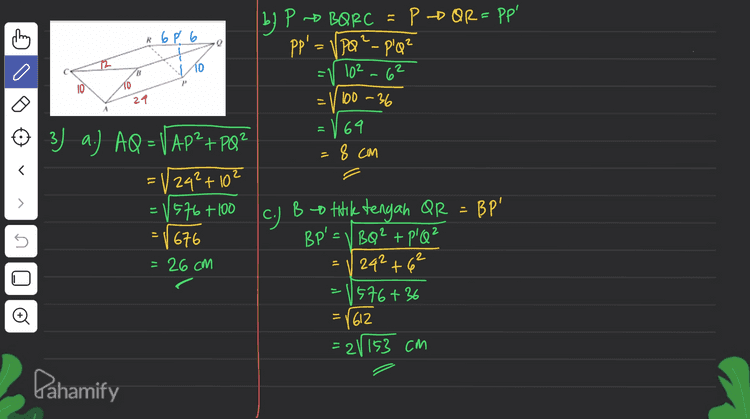 R 6 P' 6 Q
C 12 B 10
10 10 P
A 24
3) a.) AQ = √AP² + PQ²
= √24² + 10²
= √576 + 100
= √676
= 26 cm
b) P → BQRC = P → QR = PP'
PP' = √PQ² - P'Q²
= √10² - 6²
= √100 - 36
= √64
= 8 cm
c.) B → titik tengah QR = BP'
BP' = √BQ² + P'Q²
= √24² + 6²
= √576 + 36
= √612
= 2√153 cm
Pahamify